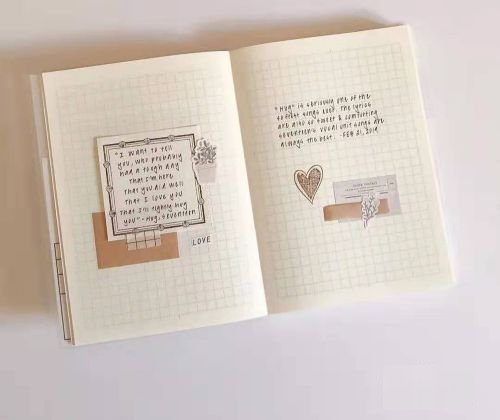 "I want to tell
you, who probably
had a tough day
That I'm here
That you did well
That I love you
That I'll tightly hug
you" - Hug, Seventeen
LOVE
"Hug" is seriously one of the
softest songs ever. The lyrics
are also so sweet & comforting
Seventeen's vocal unit songs are
always the best. - FEB 21, 2019